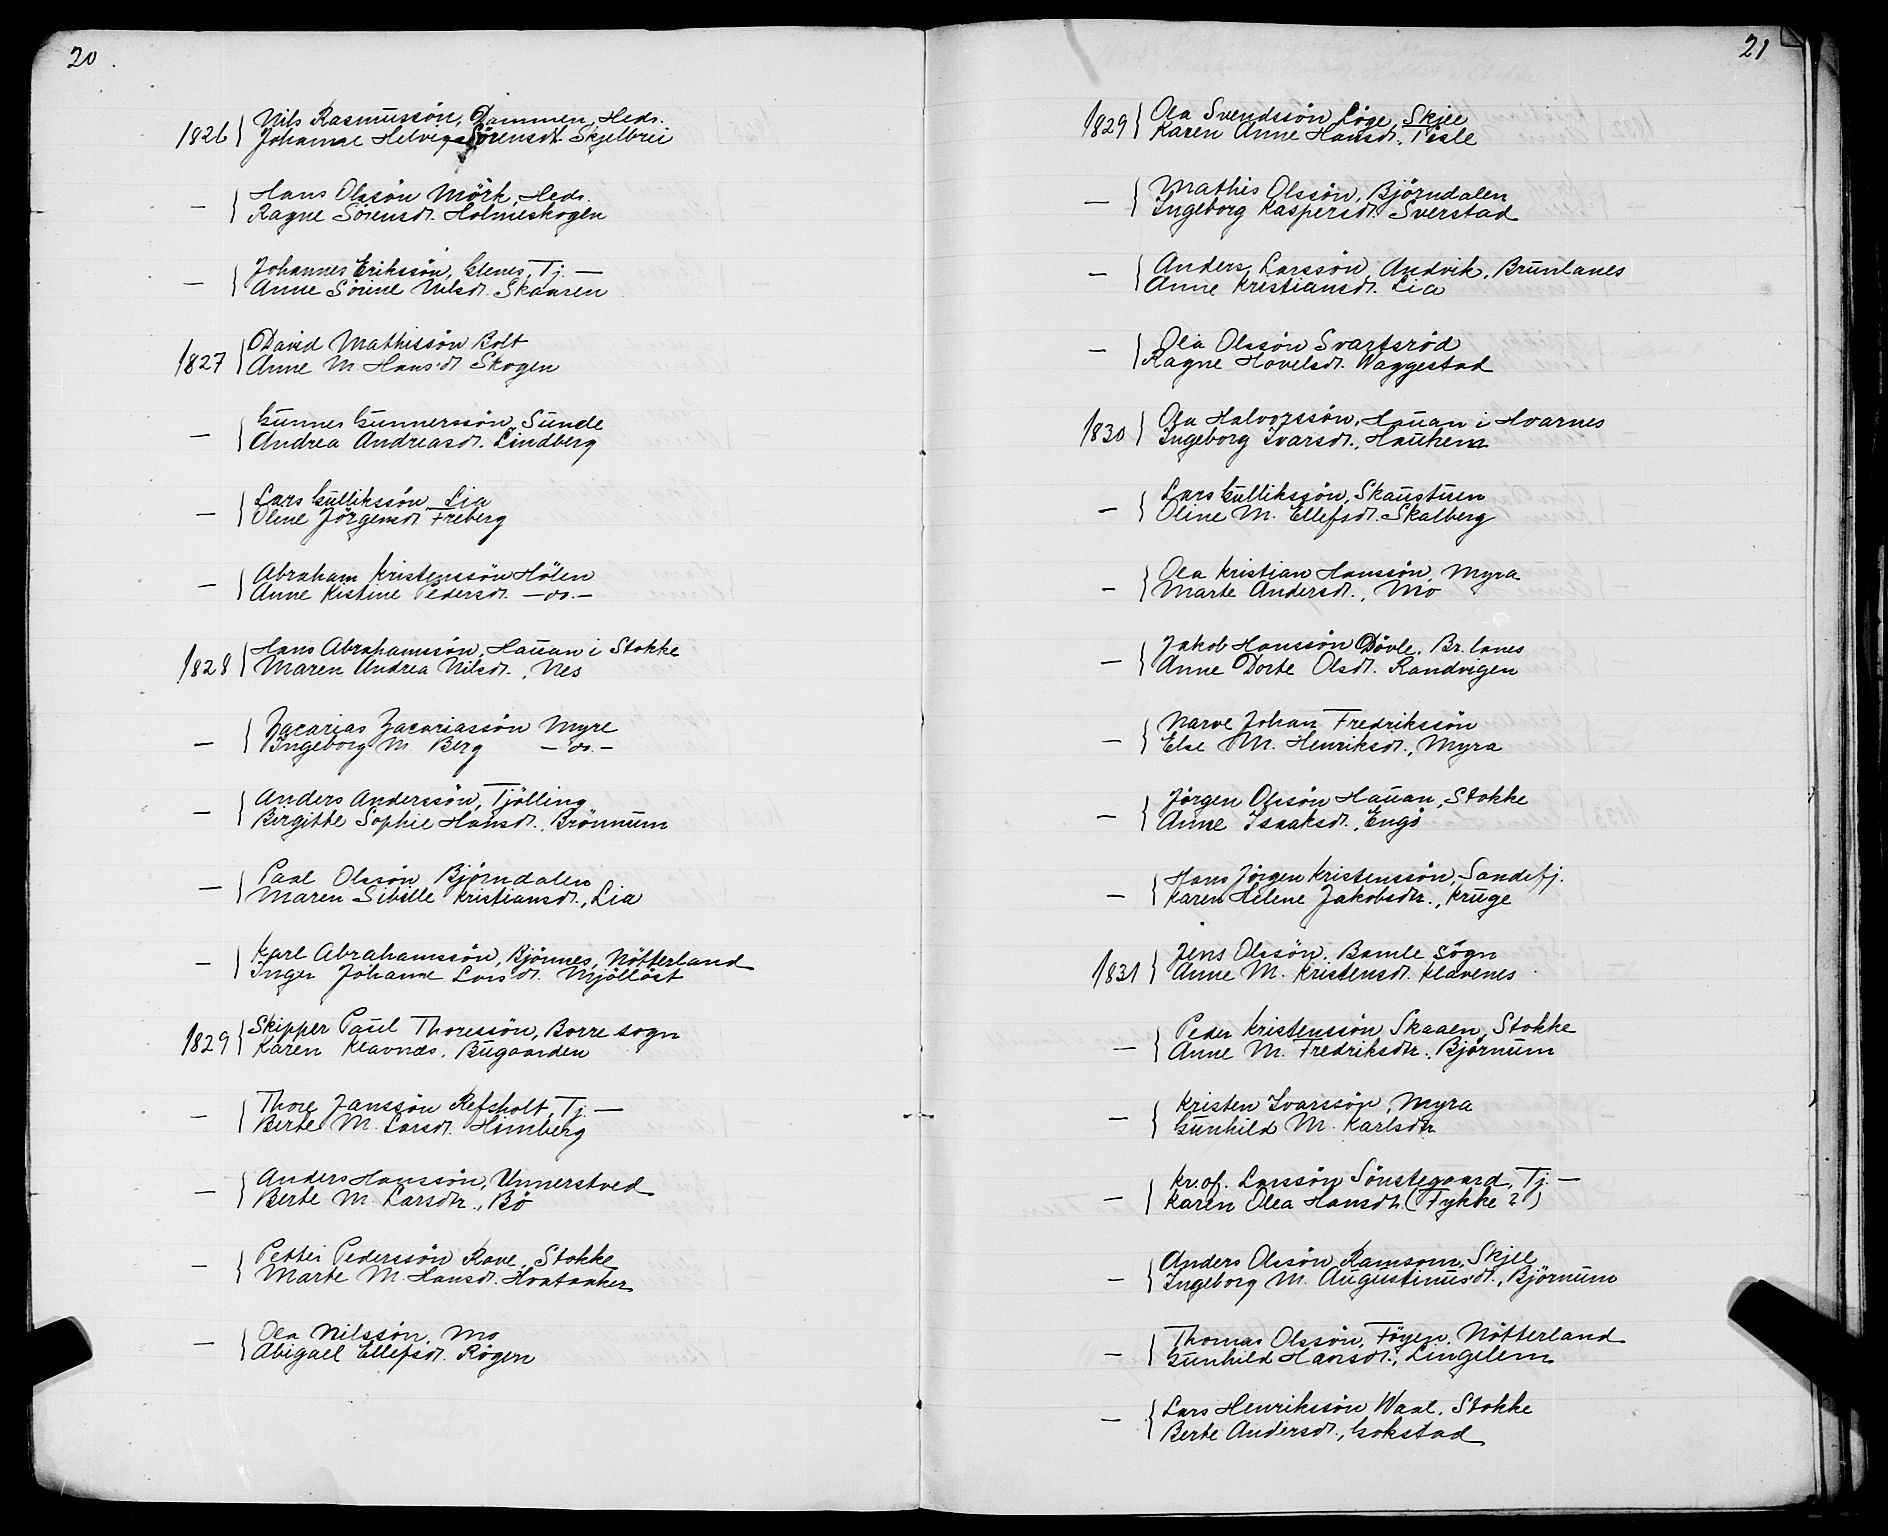 20.
1826 { Nils Rasmussön, Dammen, Heds.
Johanne Helvig Sörensdt. Skjelbrei
— { Hans Olssön Mörk, Heds.
Ragne Sörensdt. Holmeskogen
— { Johannes Erikssön, Glenes, Tj. —
Anne Sörine Nilsdt. Skaaren
1827 { David Mathissön Bolt
Anne M. Hansdt Skogen
— { Gunner Gunnerssön, Sunde
Andrea Andreasdt. Lindberg
— { Lars Gullikssön, Lia
Oline Jörgensdt Freberg
— { Abraham Kristenssön Hölen
Anne Kistine Pedersdt. — do. —
1828 { Hans Abrahamssön, Hauan i Stokke
Maren Andrea Nilsdt., Nes
— { Zacarias Zacariassön Myre
Ingeborg M. Berg — do. —
— { Anders Anderssön, Tjölling
Birgitte Sophie Hansdt., Brönnum
— { Paal Olssön Björndalen
Maren Sibille Kristiansdt., Lia
— { Karl Abrahamssön, Björnnes, Nötterland
Inger Johanne Larsdt. Mjöllöst
1829 { Skipper Paul Thoressön, Borre sogn
Karen Klavnæs, Bugaarden
— { Thore Janssön Refsholt, Tj. —
Berte M. Larsdt. Himberg
— { Anders Hanssön, Unnerstved
Berte M. Larsdtr., Bö
— { Petter Pederssön Rave, Stokke
Marte M. Hansdt. Hvataaker
— { Ola Nilssön, Mo
Abigael Ellefsdt. Rögen
21
1829 { Ola Svendssön Löge, Skjee
Karen Anne Hansdt., Tisle
— { Mathis Olssön, Björndalen
Ingeborg Kaspersdt. Sverstad
— { Anders Larssön, Andvik, Brunlanes
Anne Kristiansdt. Lia
— { Ola Olssön Svartsröd
Ragne Hovelsdt. Waggestad
1830 { Ola Halvorssön, Hauan i Hvarnes
Ingeborg Ivarsdt., Haukem
— { Lars Gullikssön, Skaustuen
Oline M. Ellefsdt. Skalberg
— { Ola Kristian Hanssön, Myra
Marte Andersdt., Mo
— { Jakob Hanssön Dövle, Br. lanes
Anne Dorte Olsdt. Randvigen
— { Narve Johan Fredrikssön
Else M. Henriksdt., Myra
— { Jörgen Olssön Hauan, Stokke
Anne Isaaksdt., Engö
— { Hans Jörgen Kristenssön, Sandefj.
Karen Helene Jakobsdtr., Kruge
1831 { Jens Olssön, Bamle Sogn
Anne M. Kristensdt. Klavenes
— { Peder Kristenssön Skaaen, Stokke
Anne M. Fredriksdtr., Björnum
— { Kristen Ivarssön, Myra
Gunhild M. Karlsdtr
— { Kr. of. Larssön Sönstegaard, Tj. —
Karen Olea Hansdt. (Tykke?)
— { Anders Olssön Ramsom, Skjee
Ingeborg M. Augustinusdt., Björnum
— { Thomas Olssön, Föyen, Nötterland
Gunhild Hansdt., Lingelem
— { Lars Henrikssön Waal, Stokke
Berte Andersdt., Gokstad